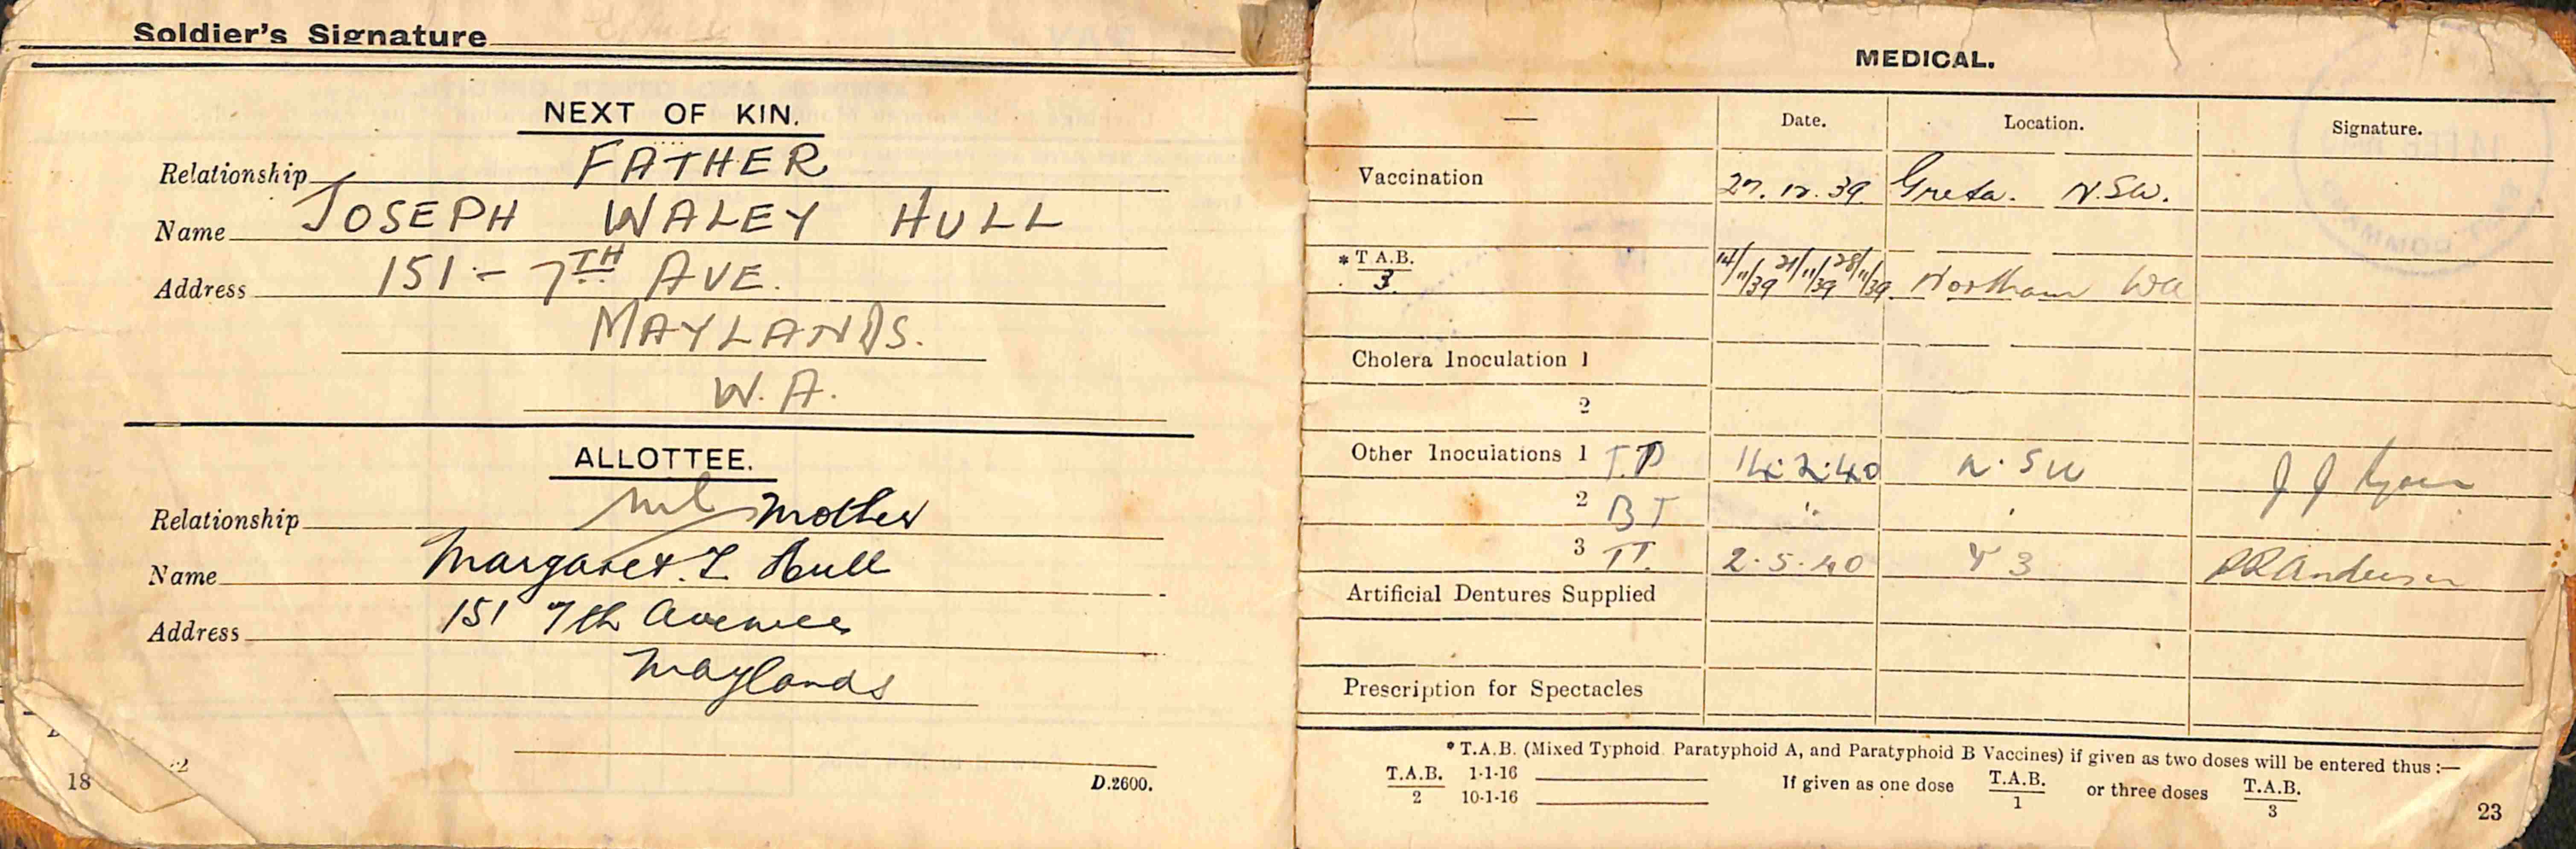 Soldier's Signature
NEXT OF KIN.
Relationship FATHER
Name JOSEPH WALEY HULL
Address 151 - 7TH AVE.
MAYLANDS.
W.A.
ALLOTTEE.
Relationship nil Mother
Name Margaret. L Hull
Address 151 7th Avenue
Maylands
18
D.2600.
MEDICAL.
— Date. Location. Signature.
Vaccination 27.12.39 Greta. N.SW.
* T A.B. 14/11/39 21/11/39 28/11/39 Northam WA
3.
Cholera Inoculation 1
2
Other Inoculations 1 T.P 14.2.40 N.SW J J Ryan
2 B T " "
3 TT. 2.5.40 Y 3 Anderson
Artificial Dentures Supplied
Prescription for Spectacles
* T.A.B. (Mixed Typhoid Paratyphoid A, and Paratyphoid B Vaccines) if given as two doses will be entered thus :—
T.A.B. 1-1-16 If given as one dose T.A.B. or three doses T.A.B.
2 10-1-16 1 3
23